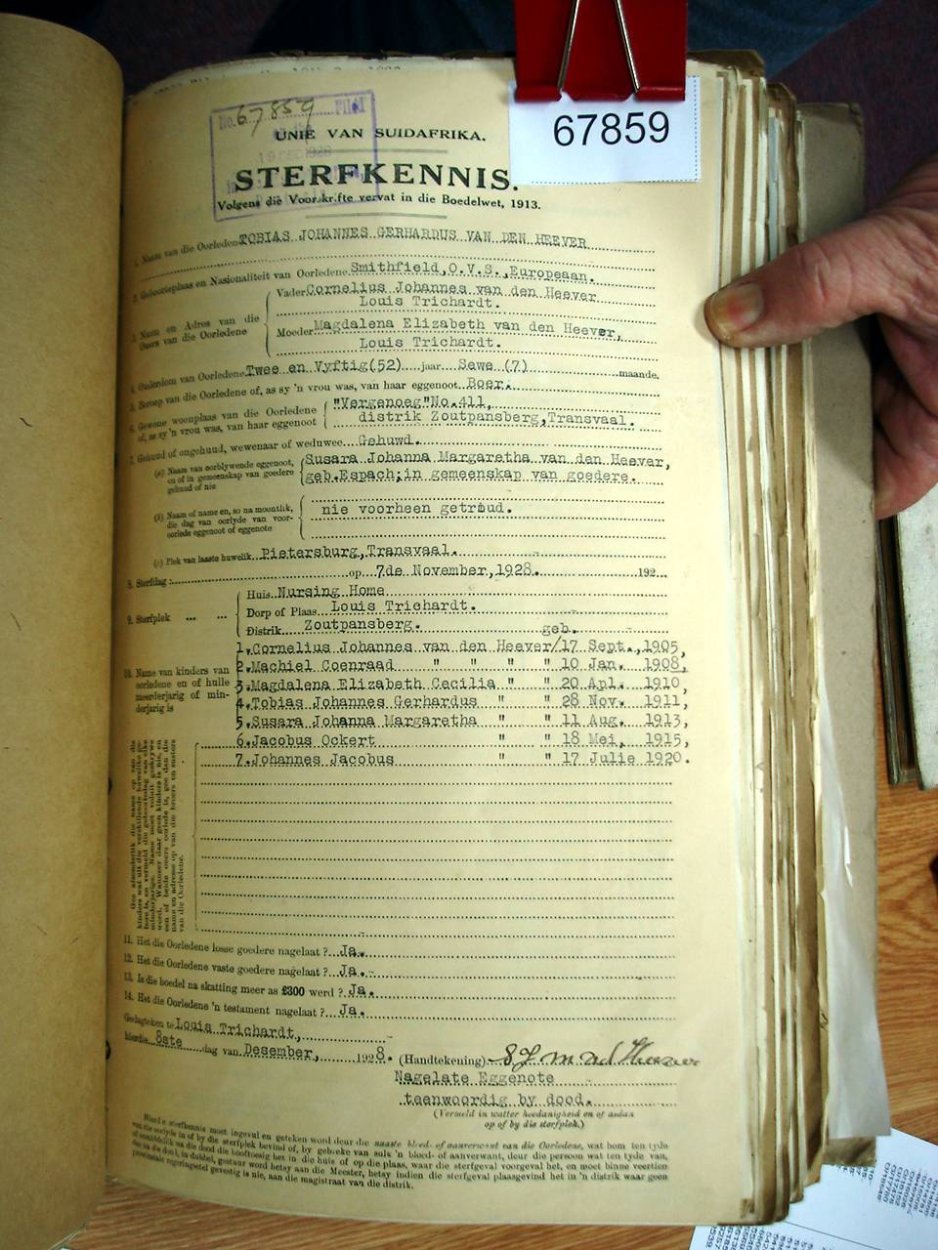 67859
No. 67859 Filed
UNIE VAN SUIDAFRIKA.
STERFKENNIS.
Volgens die Voorskrifte vervat in die Boedelwet, 1913.
1. Naam van die Oorledene TOBIAS JOHANNES GERHARDUS VAN DEN HEEVER
2. Geboorteplaas en Nasionaliteit van Oorledene Smithfield, O.V.S., Europeaan.
3. Naam en Adres van die Ouers van die Oorledene
Vader Cornelius Johannes van den Heever
Louis Trichardt.
Moeder Magdalena Elizabeth van den Heever,
Louis Trichardt.
4. Ouderdom van Oorledene Twee en Vyftig (52) jaar Sewe (7) maande.
5. Beroep van die Oorledene of, as sy 'n vrou was, van haar eggenoot Boer.
6. Gewone woonplaas van die Oorledene of, as sy 'n vrou was, van haar eggenoot
"Vergenoeg" No. 411,
distrik Zoutpansberg, Transvaal.
7. Gehuud of ongehuud, wewenaar of weduwee Gehuwd.
(a) Naam van oorblywende eggenoot, en of in gemeenskap van goedere gehuud of nie
Susara Johanna Margaretha van den Heever,
geb. Espach; in gemeenskap van goedere.
(b) Naam of name en, so na moontlik, die dag van oorlyde van vooroorlede eggenoot of eggenote
nie voorheen getroud.
(c) Plek van laaste huwelik Pietersburg, Transvaal.
8. Sterfdag: op 7de November, 1928. 192
9. Sterfplek
Huis Nursing Home
Dorp of Plaas Louis Trichardt.
Distrik Zoutpansberg.
geb.
10. Name van kinders van oorledene en of hulle meerderjarig of minderjarig is
1. Cornelius Johannes van den Heever/17 Sept., 1905,
2. Machiel Coenraad " " " " 10 Jan. 1908,
3. Magdalena Elizabeth Cecilia " " 20 Apl. 1910,
4. Tobias Johannes Gerhardus " " 28 Nov. 1911,
5. Susara Johanna Margaretha " " 11 Aug. 1913,
6. Jacobus Ockert " " 18 Mei, 1915,
7. Johannes Jacobus " " 17 Julie 1920.
11. Het die Oorledene losse goedere nagelaat? Ja.
12. Het die Oorledene vaste goedere nagelaat? Ja.
13. Is die boedel na skatting meer as £300 werd? Ja.
14. Het die Oorledene 'n testament nagelaat? Ja.
Gedagteken te Louis Trichardt,
hierdie 8ste dag van Desember, 1928.
(Handtekening) S J M v d Heever
Nagelate Eggenote
teenwoordig by dood.
(Vermeld in watter hoedanigheid en of aldan
op of by die sterfplek.)